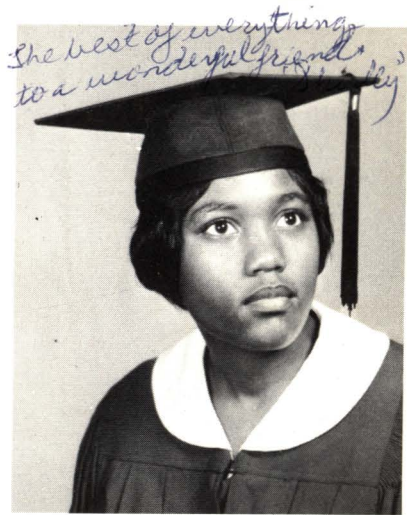 The best of everything
to a wonderful friend.